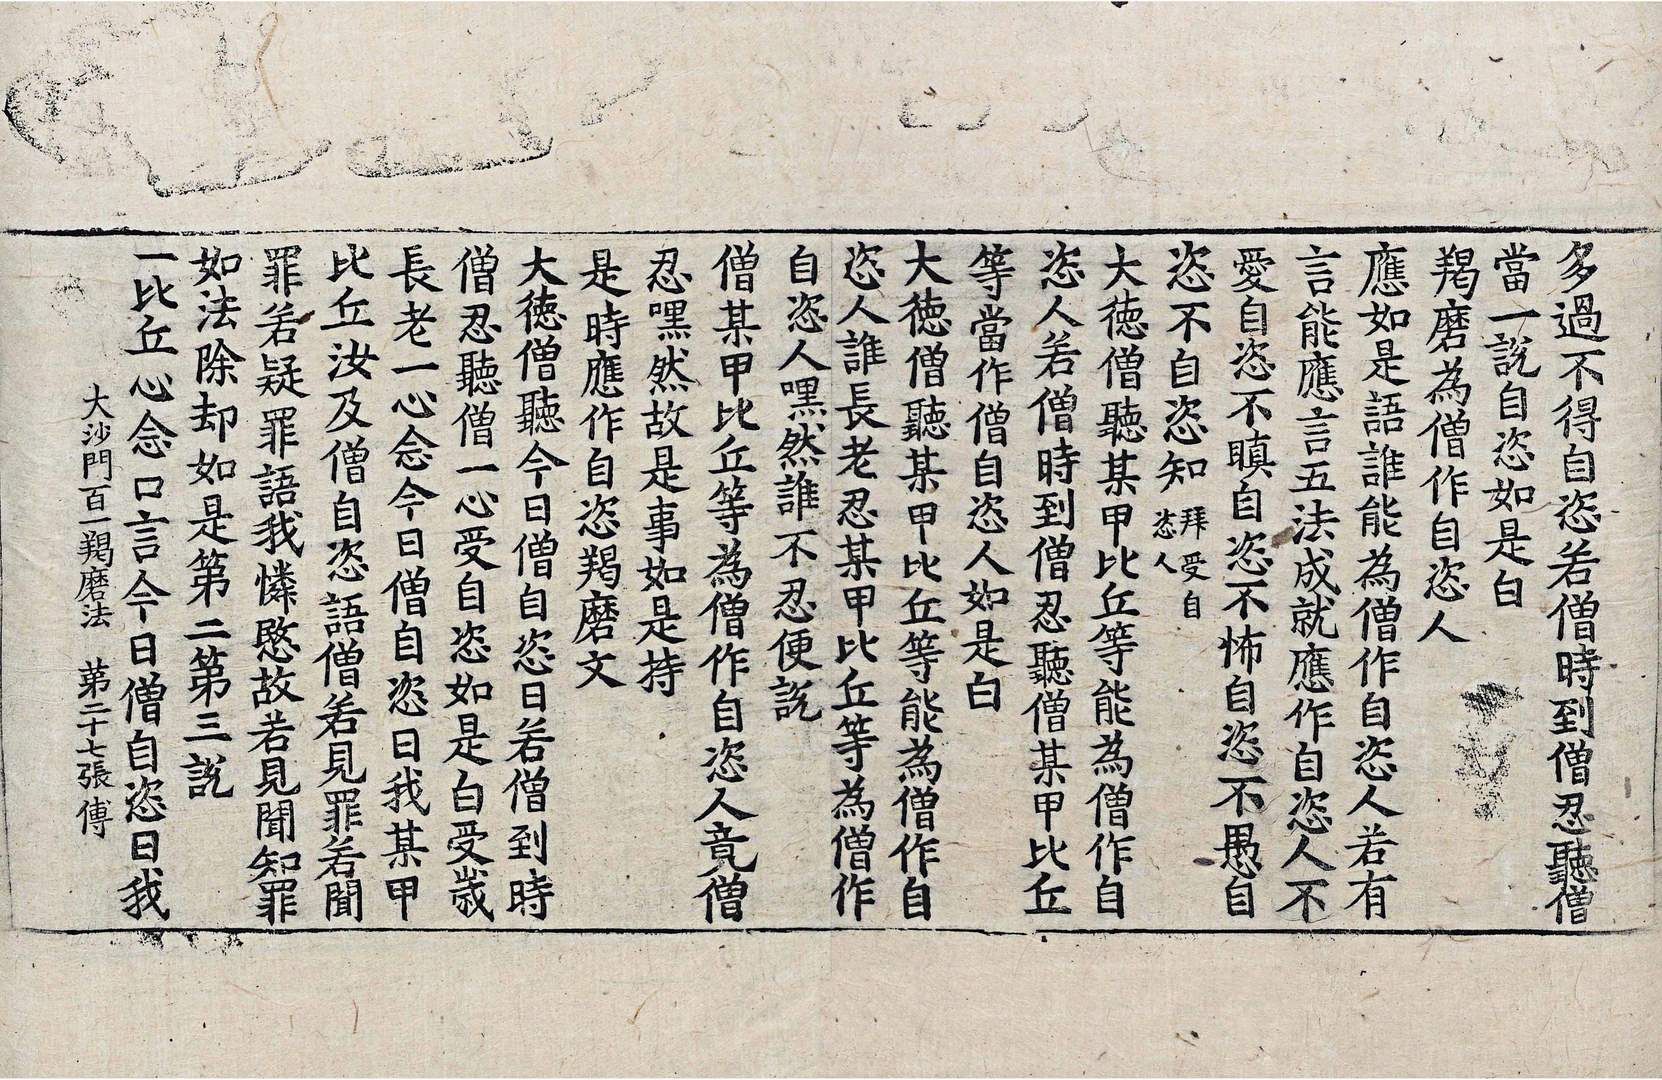 多過不得自恣若僧時到僧忍聽僧
當一說自恣如是白
羯磨為僧作自恣人
應如是語誰能為僧作自恣人若有
言能應言言五法成就應作自恣人不
愛自恣不瞋自恣不怖自恣不愚自
恣不自恣知
拜受自
恣人
大徳僧聽某甲比丘等能為僧作自
恣人若僧時到僧忍聽僧某甲比丘
等當作僧自恣人如是白
大徳僧聽某甲比丘等能為僧作自
恣人誰長老忍某甲比丘等為僧作
自恣人嘿然誰不忍便說
僧某甲比丘等為僧作自恣人竟僧
忍嘿然故是事如是持
是時應作自恣羯磨文
大徳僧聽今日僧自恣日若僧到時
僧忍聽僧一心受自恣如是白受歲
長老一心念今日僧自恣日我某甲
比丘汝及僧自恣語僧若見罪若聞
罪若疑罪語我憐愍故若見聞知罪
如法除却如是第二第三說
大沙門百一羯磨法 第二十七張 傅
一比丘心念口言今日僧自恣日我